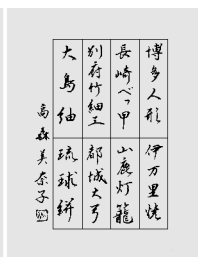 博多人形
伊万里焼
長崎べっ甲
山鹿灯籠
別府竹細工
都城大弓
大島紬
琉球絣
高森美奈子